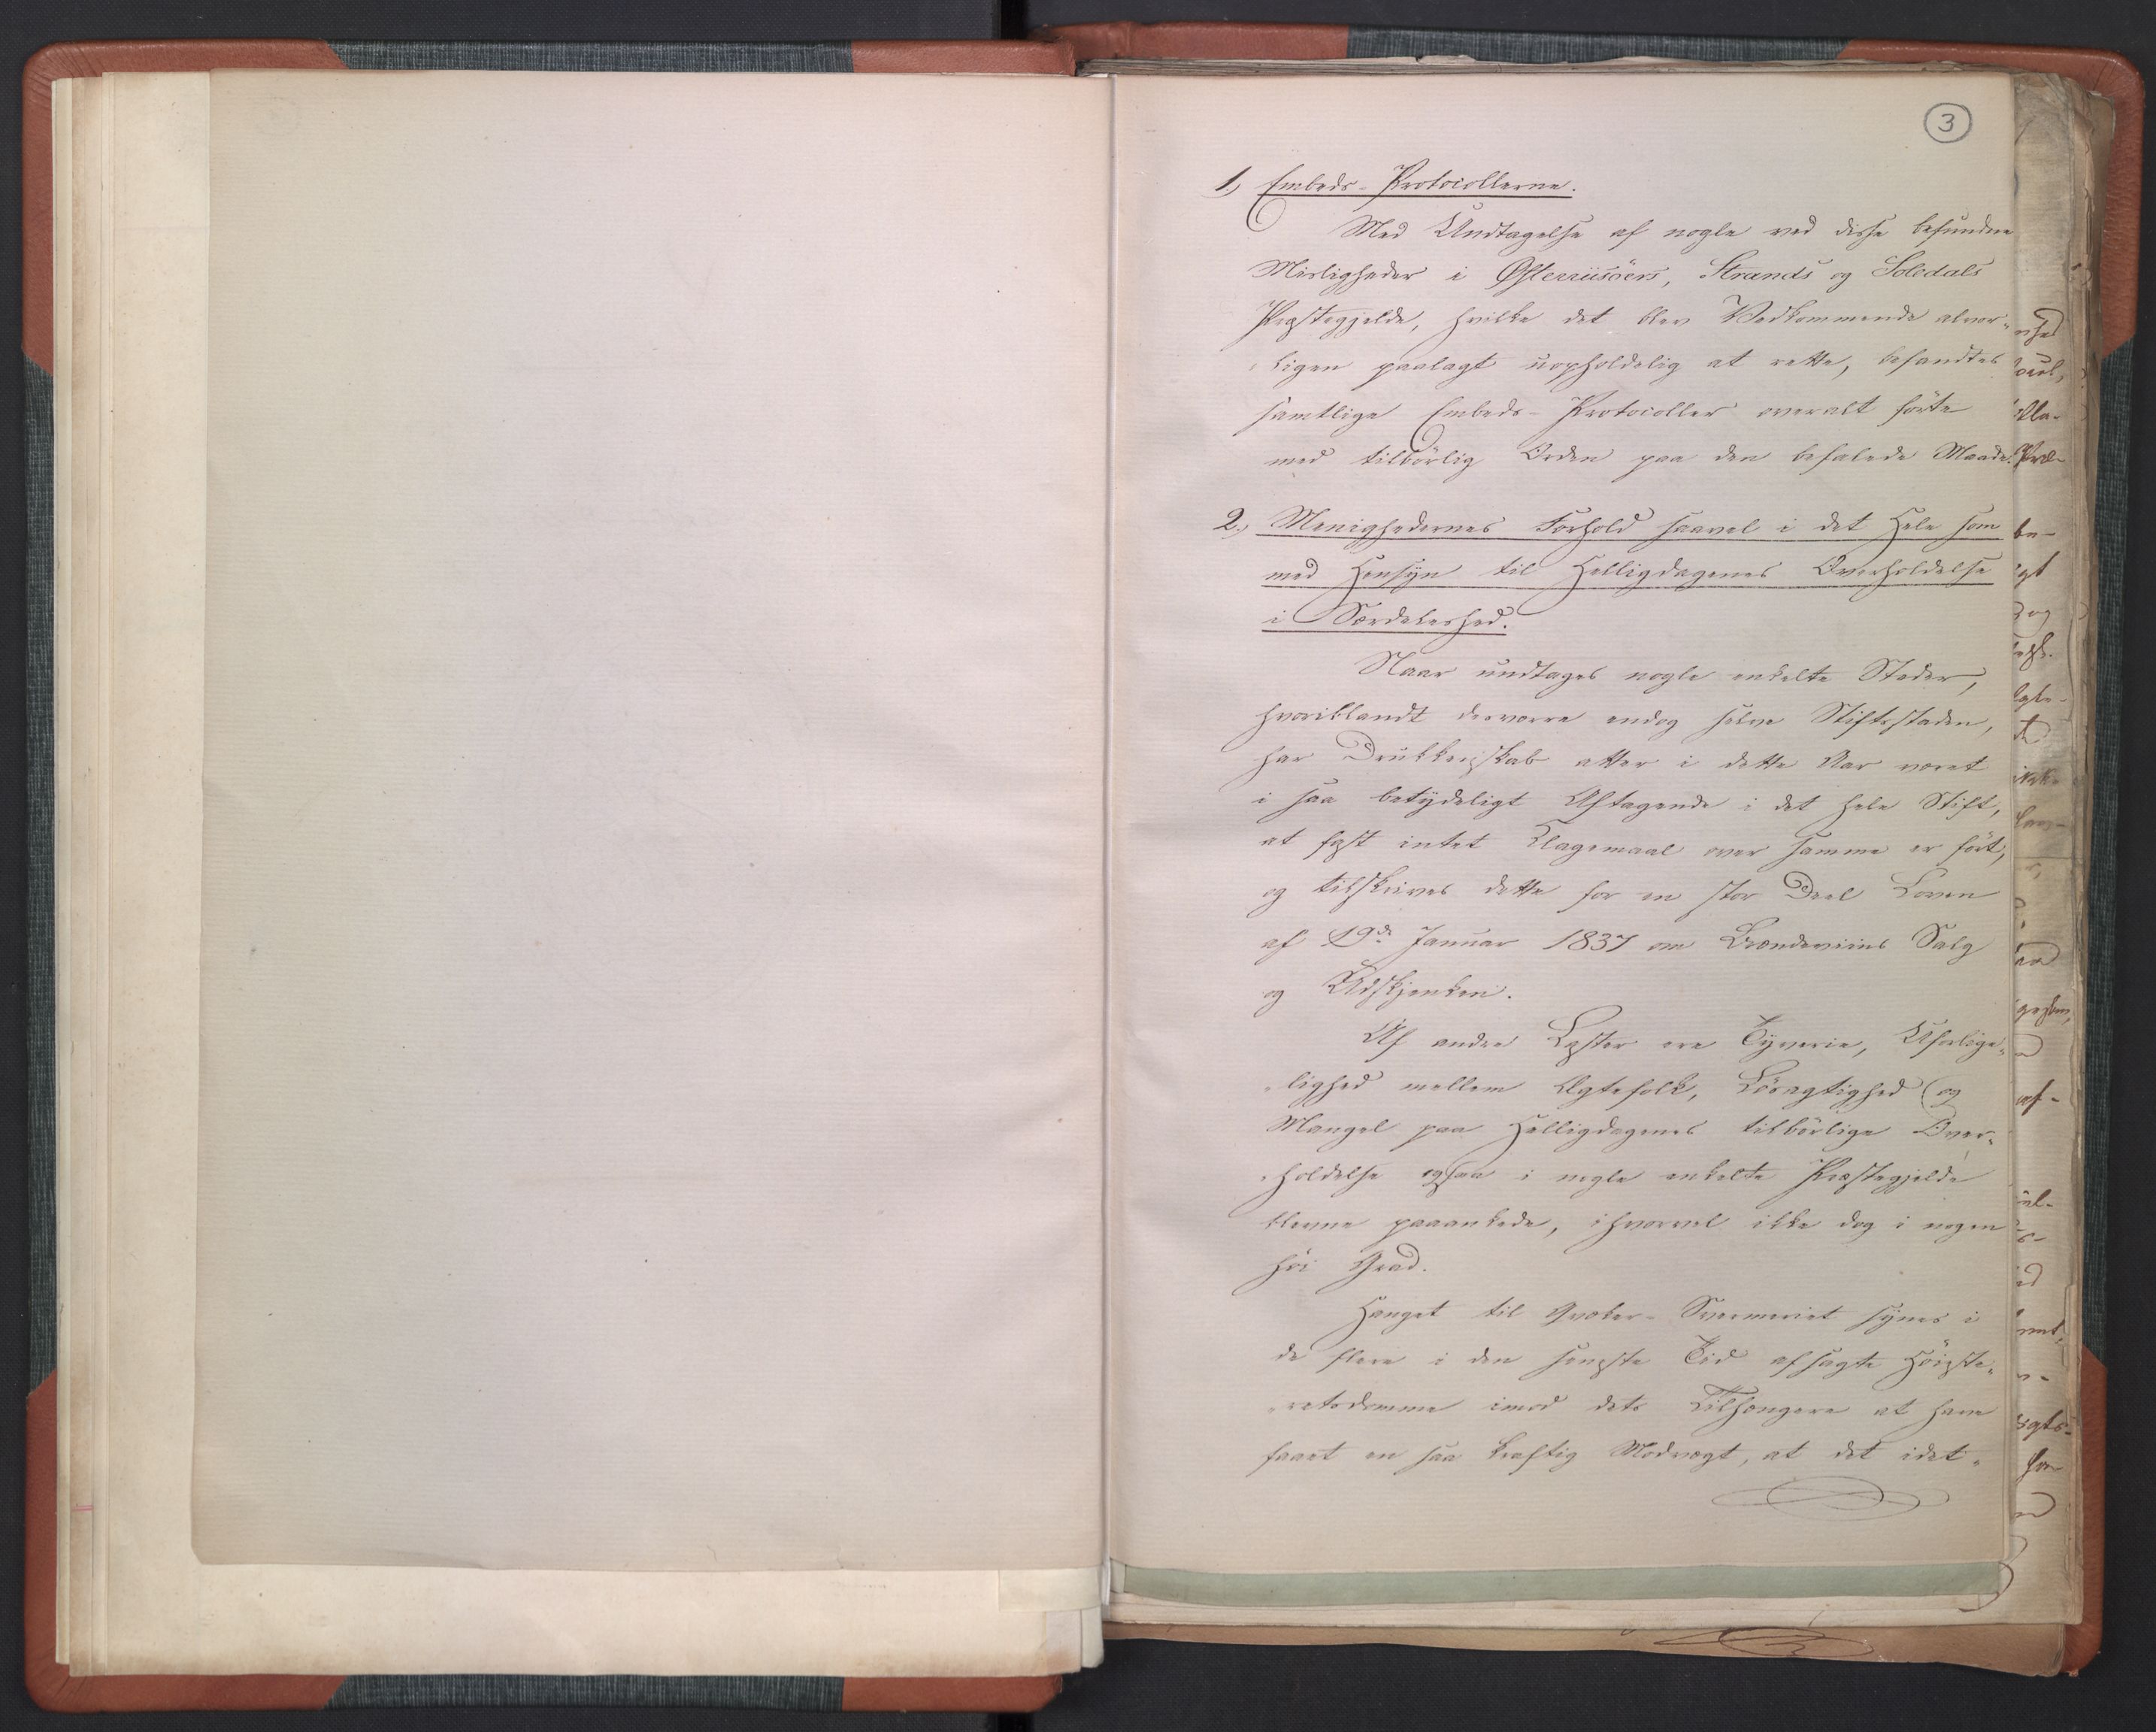 3
1.) Embeds-Protocollerne.
Med Undtagelse af nogle ved disse befundne
Misligheder i Østerriisöers, Strands og Soledals
Præstegjelde, hvilke det blev Vedkommende alvor-
ligen paalagt uopholdelig at rette, befandtes
samtlige Embeds-Protocoller overalt förte
med tilbörlig Orden paa den befalede Maade.
2.) Menighedernes Forhold saavel i det Hele som
med Hensyn til Helligdagenes Overholdelse
i Særdeleshed.
Naar undtages nogle enkelte Steder,
hvoriblandt desværre endog selve Stiftsstaden,
har Drukkenskab atter i dette Aar været
i saa betydeligt Aftagende i det hele Stift,
at fast intet Klagemaal over samme er fört,
og tilskrives dette for en stor Deel Loven
af 19de Januar 1837 om Brændeviins Salg
og Udskjenken.
Af andre Laster ere Tyverie, Uforlige-
lighed mellem Ægtefolk, Lösagtighed og
Mangel paa Helligdagenes tilbörlige Over-
holdelse ogsaa i nogle enkelte Præstegjelde
blevne paaankede, ihvorvel ikke dog i nogen
höi Grad.
Hanget til Qvæker-Sværmeriet synes i
de flere i den seneste Tid afsagte Höieste-
retsdomme imod dets Tilhængere at have
faaet en saa kraftig Modvægt, at det idet-